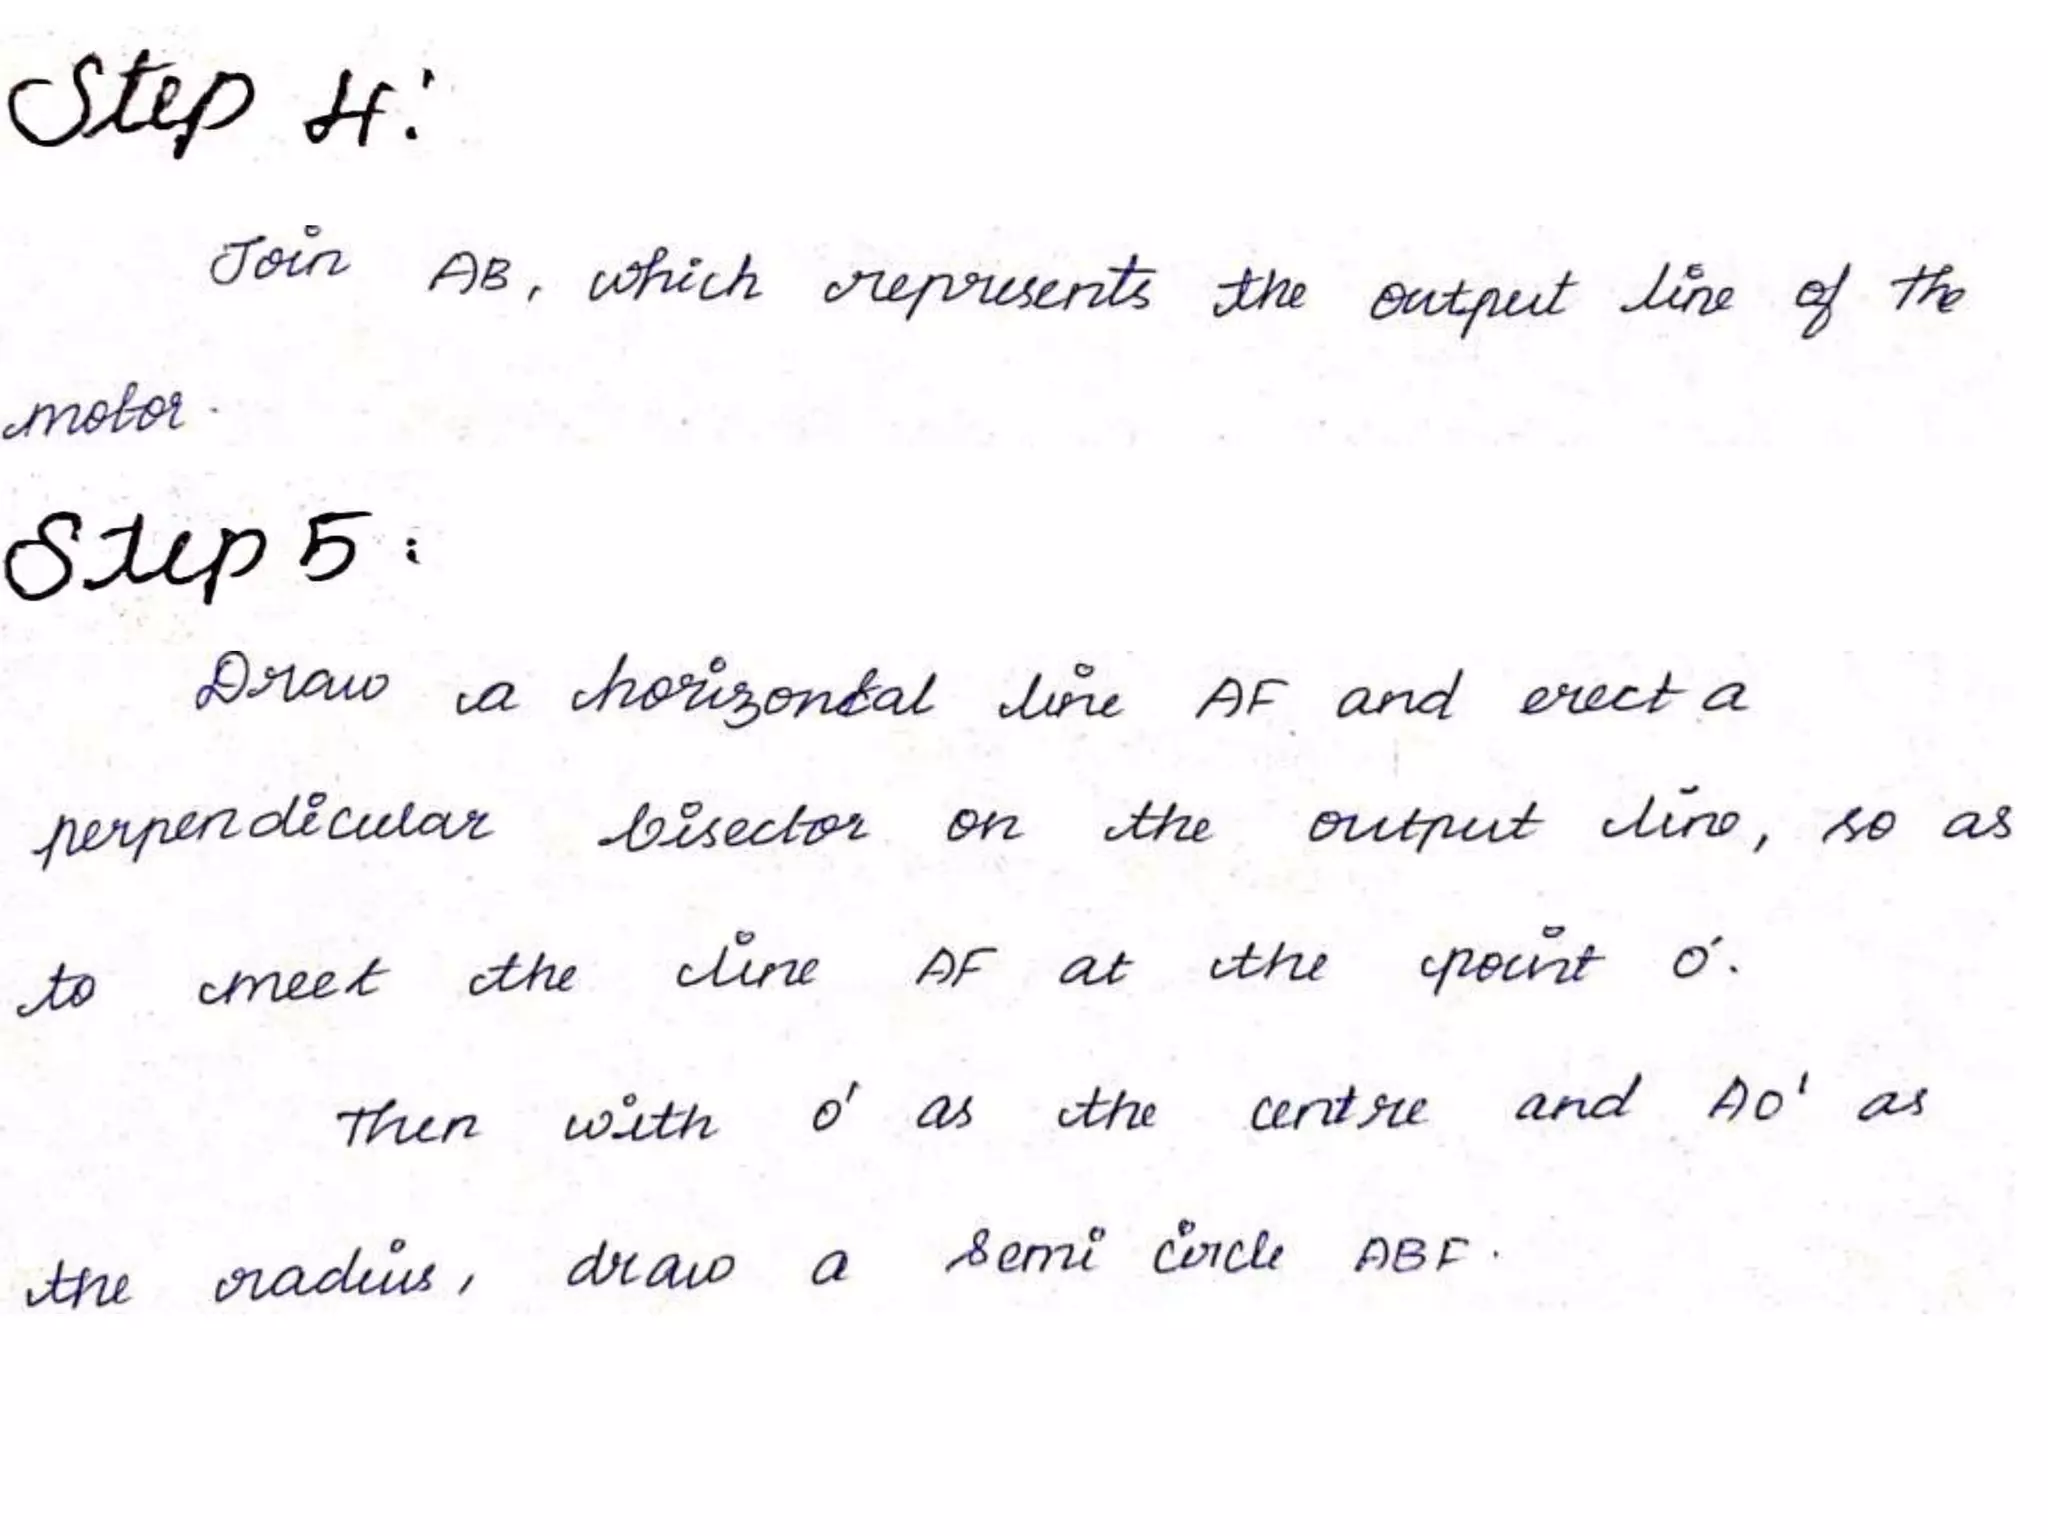 Step 4:
Join AB, which represents the output line of the
motor.
Step 5:
Draw a horizontal line AF and erect a
perpendicular bisector on the output line, so as
to meet the line AF at the point O'.
Then with O' as the centre and AO' as
the radius, draw a semi circle ABF.